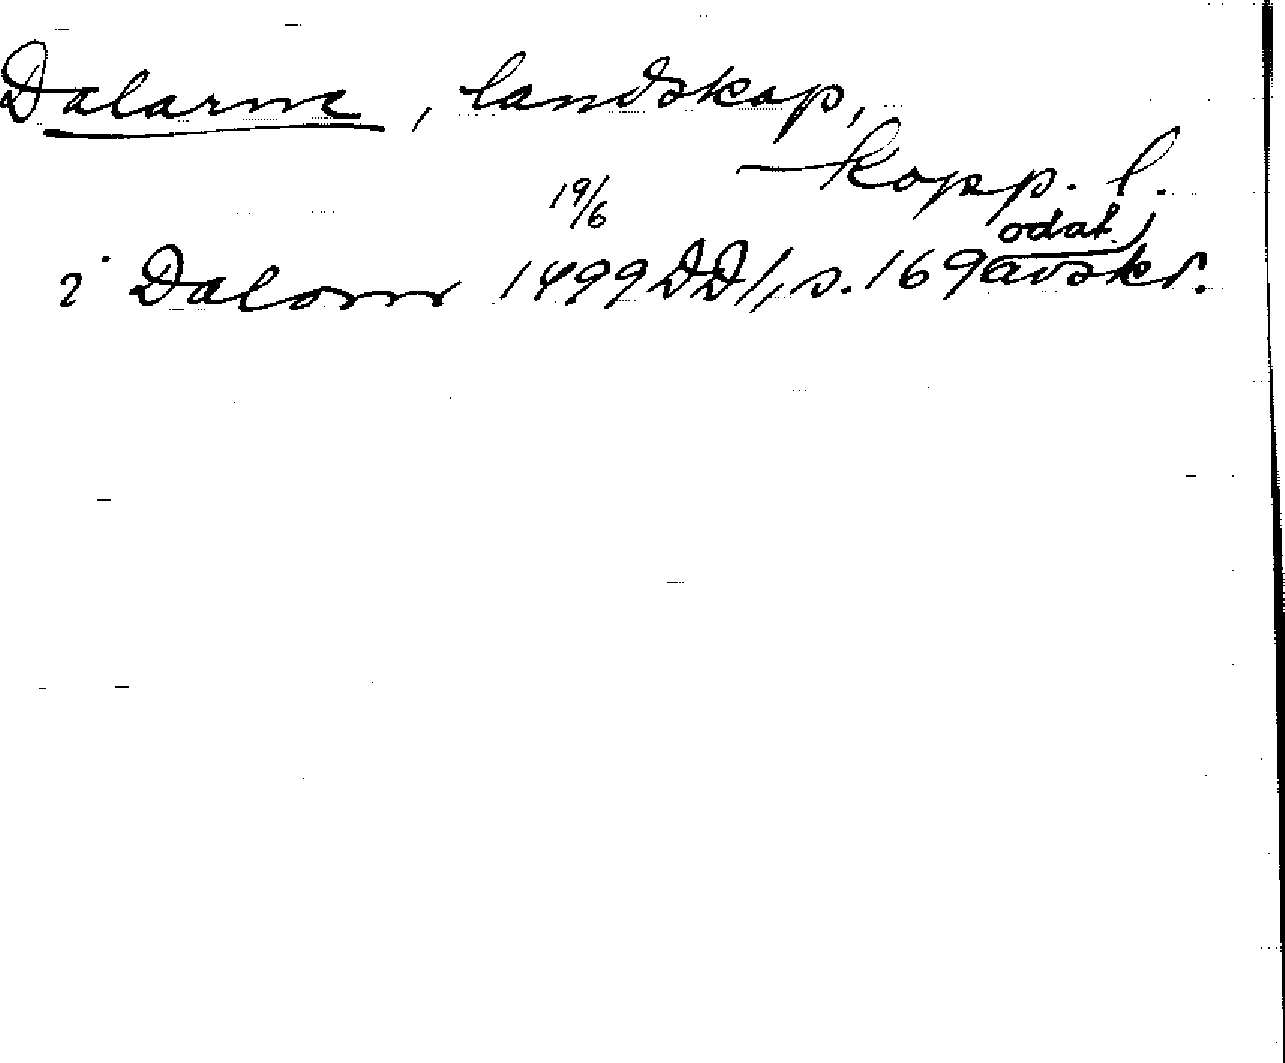 Dalarne, landskap,
Kopp. l.
19/6
odat.
i Dalom 1499 DD1, s. 169 avskr.